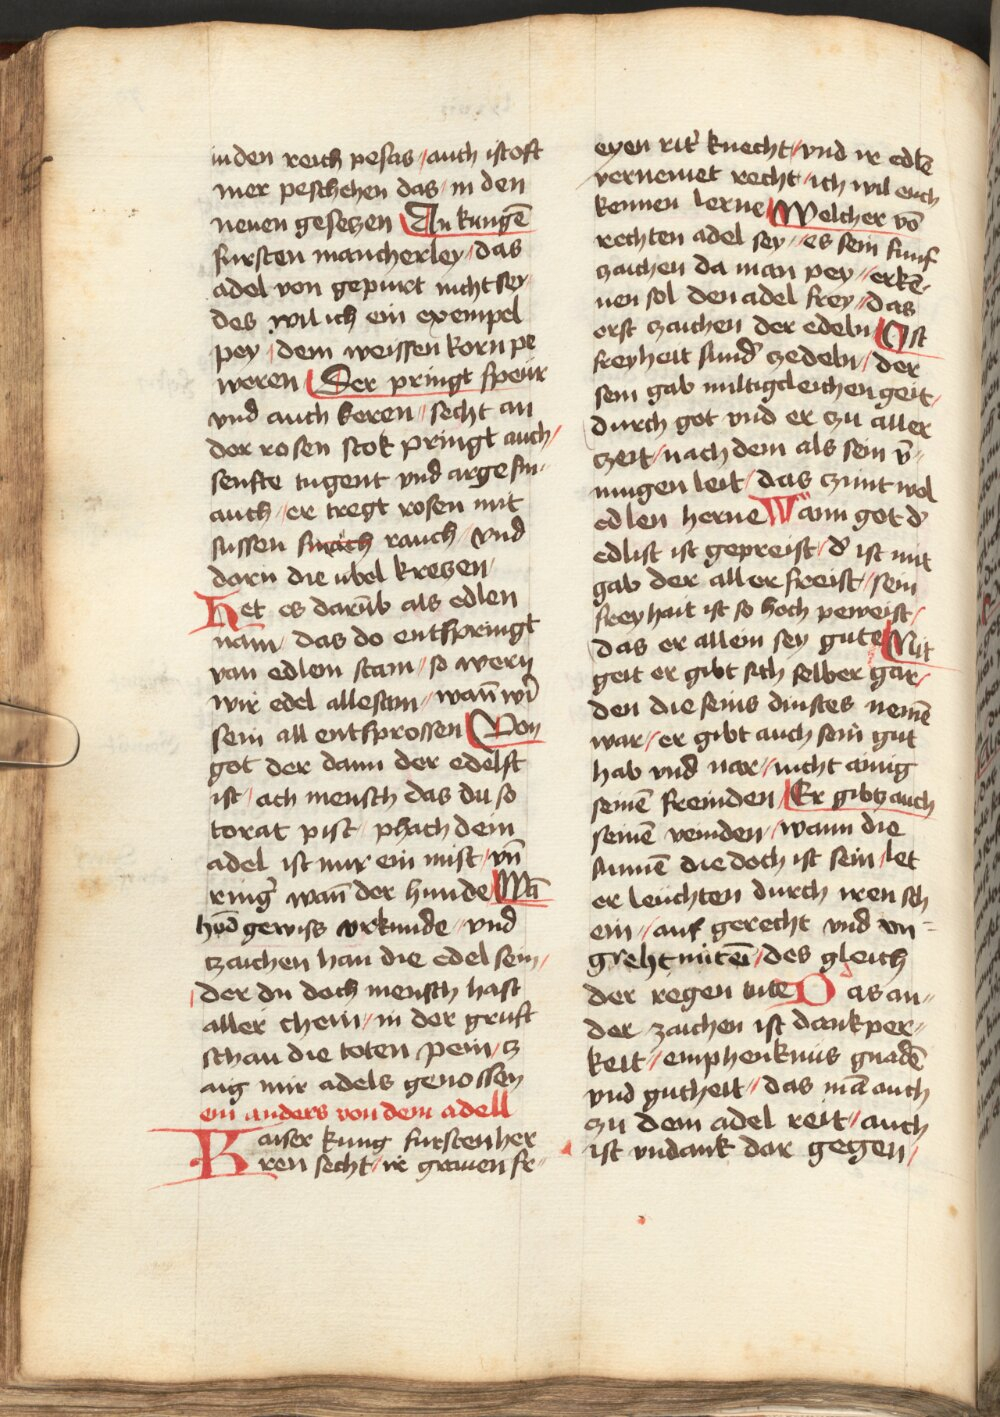 in den reich pesas / auch ist oft
mer peschehen das / in den
neuen gesetzen An kungē
fursten mancherley / das
adel von gepurt nicht sey /
des wil ich ein exempel
pey / dem weissen korn pe
weren Der pringt speur
vnd auch keren // secht an
der rosen stok pringt auch /
senfte tugent vnd arge sin //
auch / er tregt rosen mit
sussen smach rauch / vnd
dorn die ubel kretzen /
Het es darūb als edlen
nam / das do entspringt
van edlem stam / so wern
wir edel allesam / wan̄ wir
sein all entsprossen Von
got der dann der edelst
ist / ach mensch das du so
torat pist / phach dein
adel ist mir ein mist / vn̄
ring̉ wan̄ der hunde Wā
hōd gewiss vrkunde // vnd
tzaichen han die edel sein /
der du doch mensch hast
aller chein / in der gruft
schau die toten pein / tz
aig mir adels genossen
ein anders von dem adell
Kaiser kung fursten her
ren secht / ir grauen fr //
eyen rit̉ knecht // vnd ir edlē
vernemet recht / ich wil euch
kennen lerne Welcher vō
rechten adel sey // es sein funf
tzaichen da man pey // erkē /
nen sol den adel frey // das
erst tzaichen der edeln Ist
freyheit sund̉ tzedeln / der
sein gab miltigcleichen geit /
durch got vnd er tzu aller
tzeit / nach dem als sein v̄ //
mugen leit / das tzimt wol
edlen herne Wann got d̉
edlist ist gepreist / d̉ ist mit
gab der aller freist // sein
freyhait ist so hoch peweist /
das er allein sey gute Mit
geit er gibt sich selber gar /
den die seins dinstes nemē
war / er gibt auch sein gut
hab vnd nar // nicht ainig
seinē freinden / Er gibtz auch
seinē veinden / wann die
sunnē die doch ist sein / let
er leuchten durch iren sch
ein // auf gerecht vnd vn =
greht miteī / des gleich
der regen tute Das an //
der zaichen ist dankper //
keit // emphenknus gnadē
vnd gutheit // das mā auch
tzu dem adel reit // auch
ist vndank dar gegen /